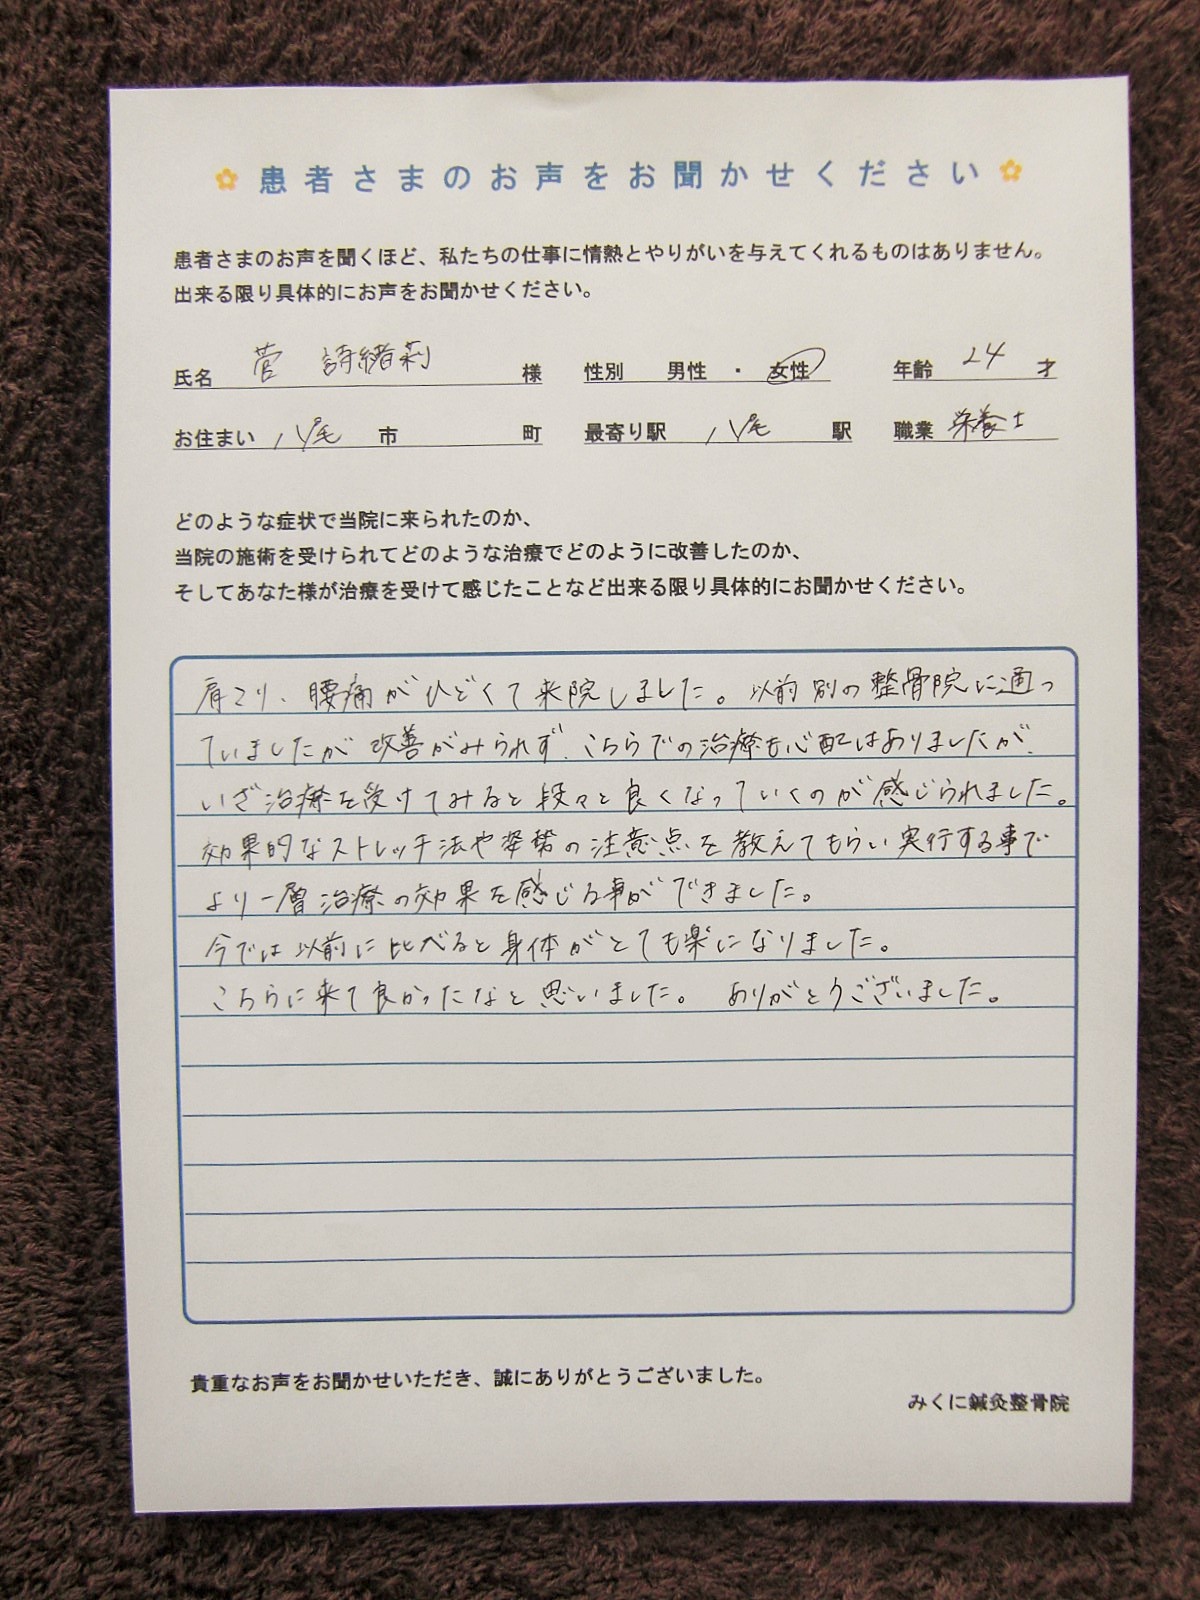 患者さまのお声をお聞かせください
患者さまのお声を聞くほど、私たちの仕事に情熱とやりがいを与えてくれるものはありません。
出来る限り具体的にお声をお聞かせください。
氏名 菅 詩緒莉 様 性別 男性 ・ 女性 年齢 24 才
お住まい 八尾 市 町 最寄り駅 八尾 駅 職業 栄養士
どのような症状で当院に来られたのか、
当院の施術を受けられてどのような治療でどのように改善したのか、
そしてあなた様が治療を受けて感じたことなど出来る限り具体的にお聞かせください。
肩こり、腰痛がひどくて来院しました。以前別の整骨院に通っ
ていましたが改善がみられず、こちらでの治療も心配はありましたが、
いざ治療を受けてみると段々と良くなっていくのが感じられました。
効果的なストレッチ法や姿勢の注意点を教えてもらい実行する事で
より一層治療の効果を感じる事ができました。
今では以前に比べると身体がとても楽になりました。
こちらに来て良かったなと思いました。ありがとうございました。
貴重なお声をお聞かせいただき、誠にありがとうございました。
みくに鍼灸整骨院